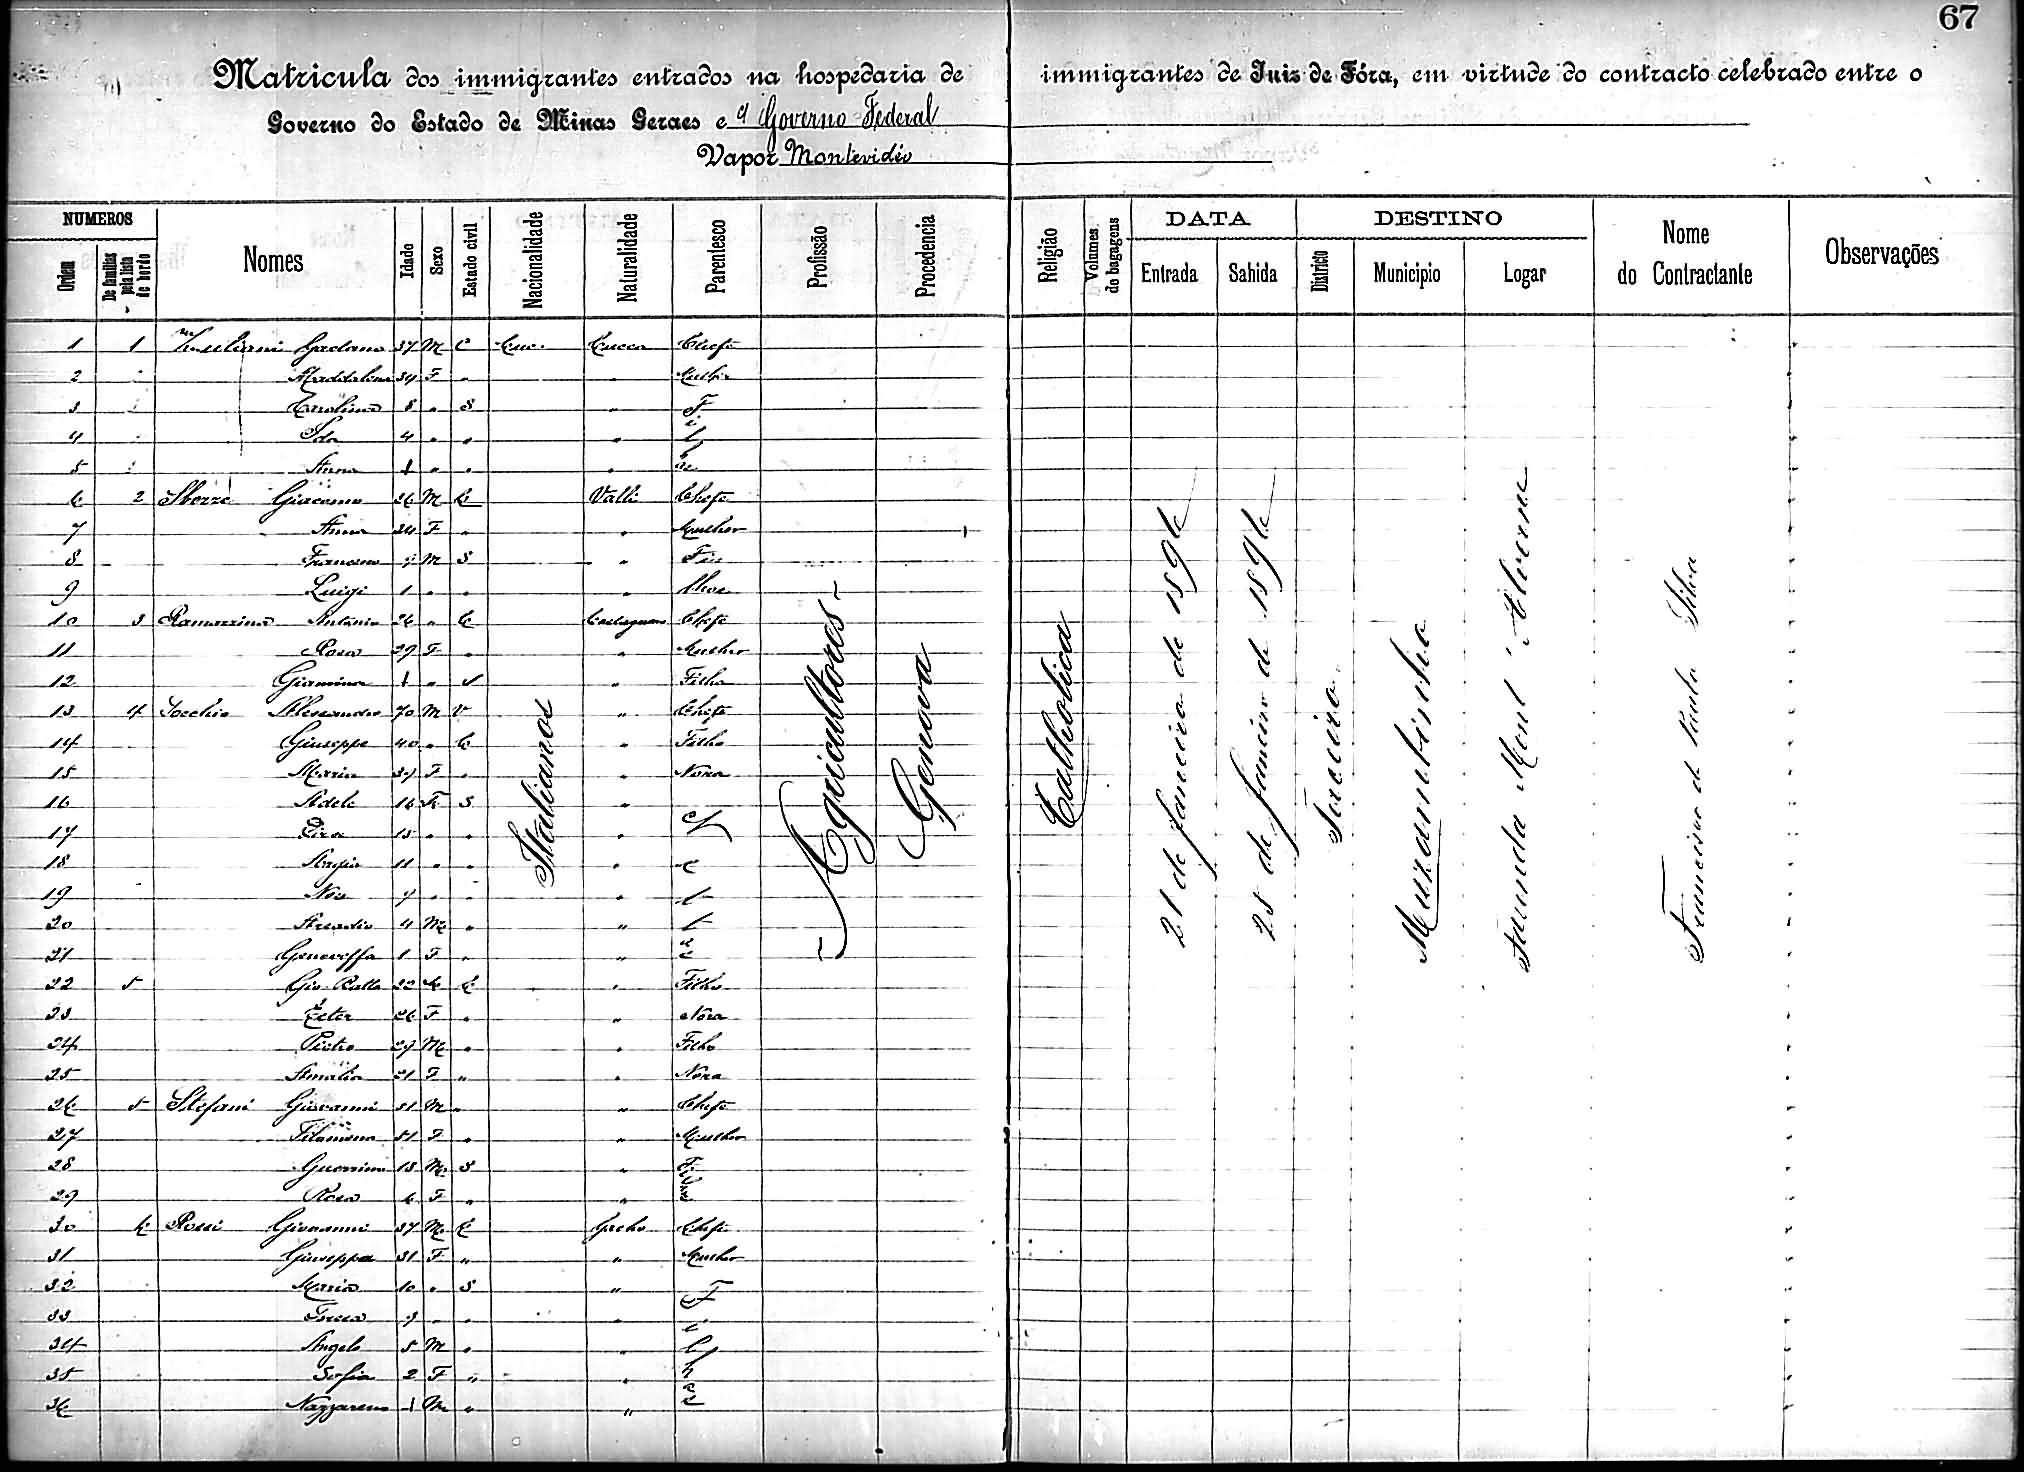 67
Matricula dos immigrantes entrados na hospedaria de immigrantes de Juiz de Fóra, em virtude do contracto celebrado entre o
Governo do Estado de Minas Geraes e o Governo Federal
Vapor Montevidéo
NUMEROS
Ordem
De familias pela lista de bordo
Nomes
Idade
Sexo
Estado civil
Nacionalidade
Naturalidade
Parentesco
Profissão
Procedencia
Religião
Volumes do bagagens
DATA
Entrada
Sahida
DESTINO
Districto
Municipio
Logar
Nome do Contractante
Observações
1 1 Gaetano 37 M C Lucca Chefe
2 Maddalena 34 F " " Mulher
3 Carolina 8 " S " F
4 Ida 4 " " " i
5 Anna 1 " " "
6 2 Giacomo 26 M C Valli Chefe
7 Anna 24 F " " Mulher
8 Francesco M S "
9 Luigi 1 " " "
10 3 Antonio 26 " C Chefe
11 Rosa 29 F " " Mulher
12 Giannina 1 " S " Filha
13 4 Alessandro 70 M V " Chefe
14 Giuseppe 40 " C " Filho
15 Maria 39 F " " Nora
16 Adele 16 F S "
17 15 " " "
18 11 " " "
19 7 " " "
20 Arcadio 4 M " "
21 Genoveffa 1 F " "
22 5 Gio Batta 22 C " Filho
23 Ester 26 F " " Nora
24 Pietro 29 M " " Filho
25 Amalia 21 F " " Nora
26 5 Stefani Giovanni 51 M " " Chefe
27 Filomena 51 F " " Mulher
28 Guerrino 13 M S "
29 Rosa 6 F " "
30 6 Rossi Giovanni 37 M C Chefe
31 Giuseppa 31 F " " Mulher
32 Maria 10 " S " F
33 " " " i
34 Angelo 5 M " " l
35 Sofia 2 F " " h
36 Nazzareno 1 M " "
Italianos
Agricultores
Genova
Catholica
21 de Janeiro de 1896
25 de Janeiro de 1896
Terceiro
Muzambinho
Fazenda Mont'Alverne
Francisco de Paula Silva